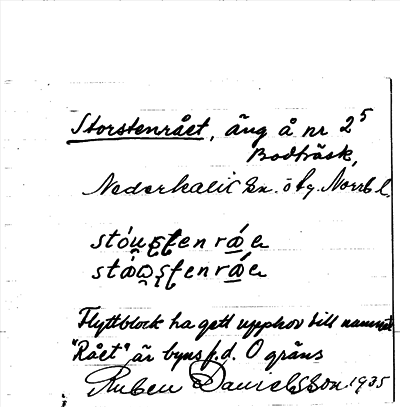 Storstenrået, äng å nr 2⁵
Bodträsk,
Nederkalix sn. ö by. Norrb l.
Flyttblock ha gett upphov till namnet
"Rået" är byns f.d. O gräns
Ruben Danielsson 1935